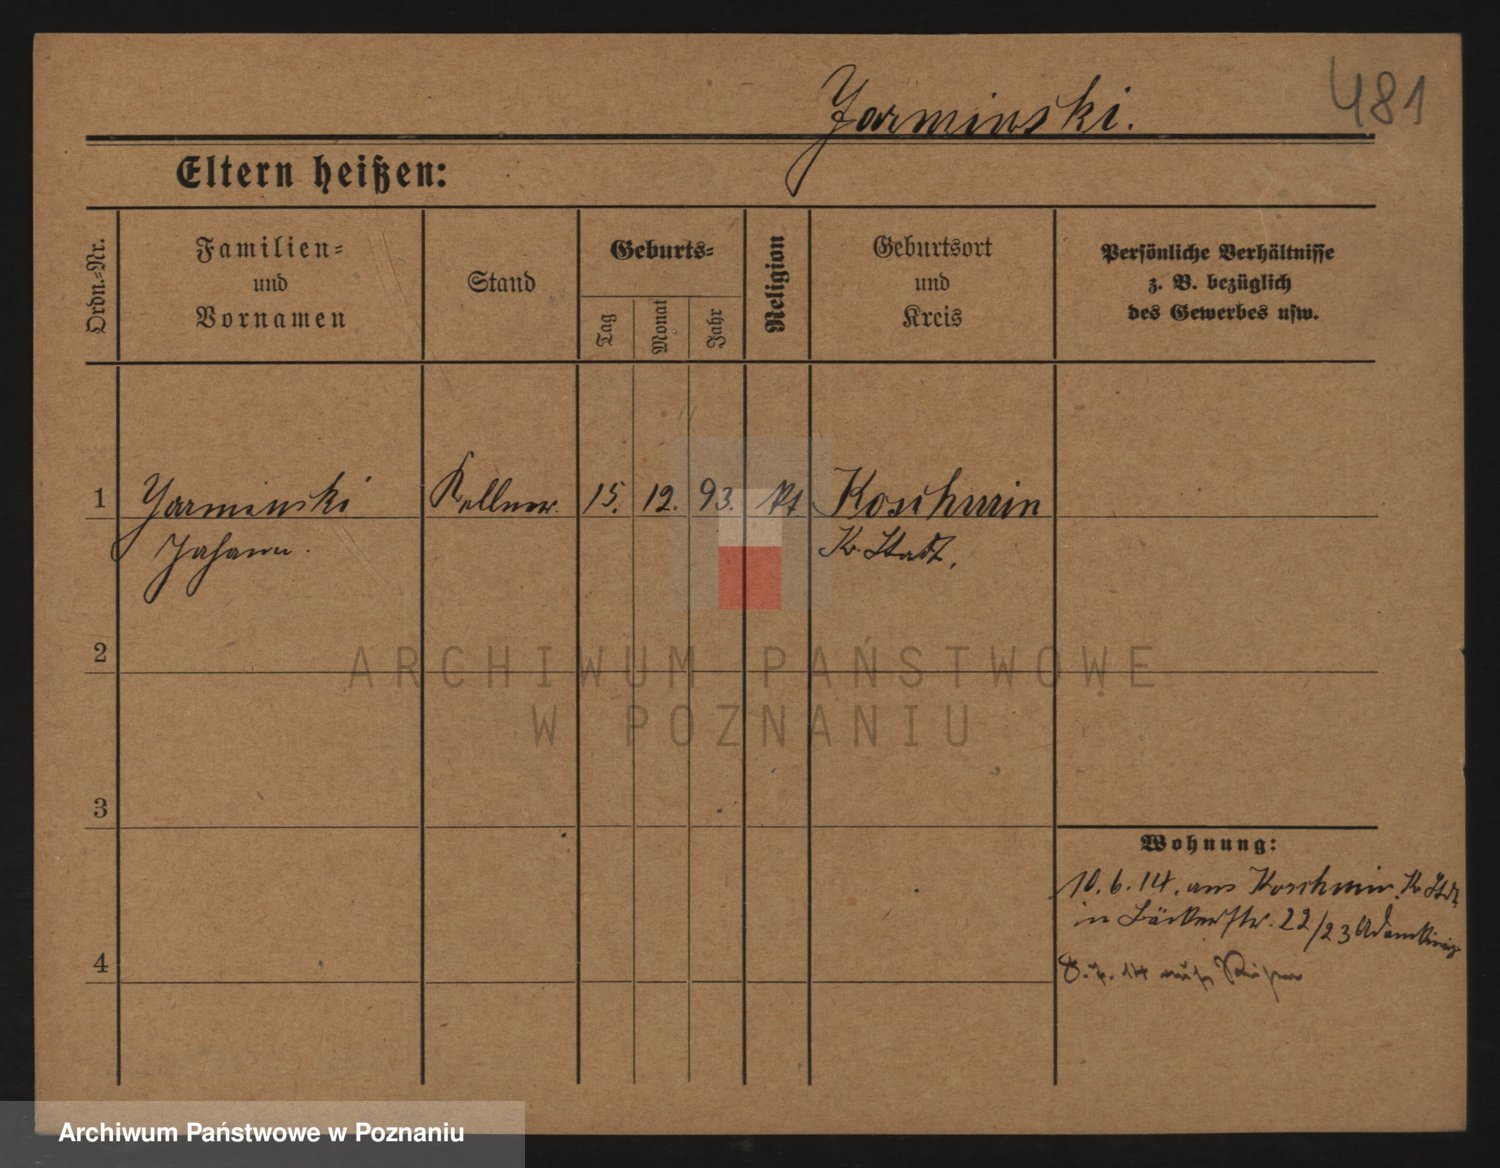 481
Jarminski.
Eltern heißen:
Ordn.-Nr.
Familien-
und
Vornamen
Stand
Geburts-
Tag
Monat
Jahr
Religion
Geburtsort
und
Kreis
Persönliche Verhältnisse
z. B. bezüglich
des Gewerbes usw.
1 Jarminski Kellner. 15. 12. 93. kt Koschmin
Johann. Kr. Stadt.
2
ARCHIWUM PAŃSTWOWE
W POZNANIU
3
Wohnung:
10.6.14. aus Koschmin. Kr. Stdt
in Bäckerstr. 22/23
4
8.7.14 auf
Archiwum Państwowe w Poznaniu